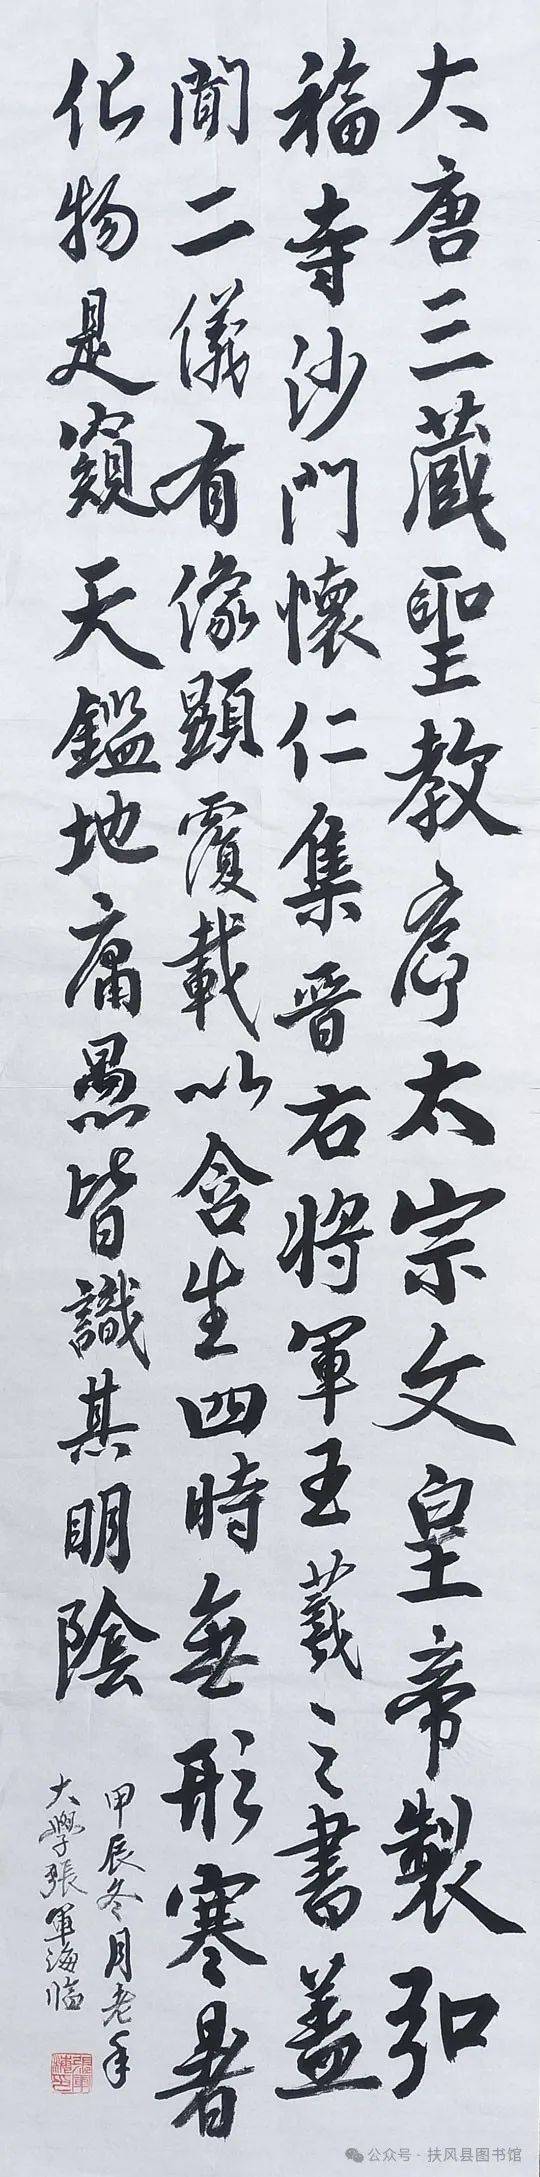 大唐三藏聖教序太宗文皇帝製弘
福寺沙門懷仁集晉右將軍王羲之書蓋
聞二儀有像顯覆載以含生四時無形寒暑
化物是窺天鑑地庸愚皆識其明陰
甲辰冬月老年
大學張軍海臨
公众号 · 扶风县图书馆